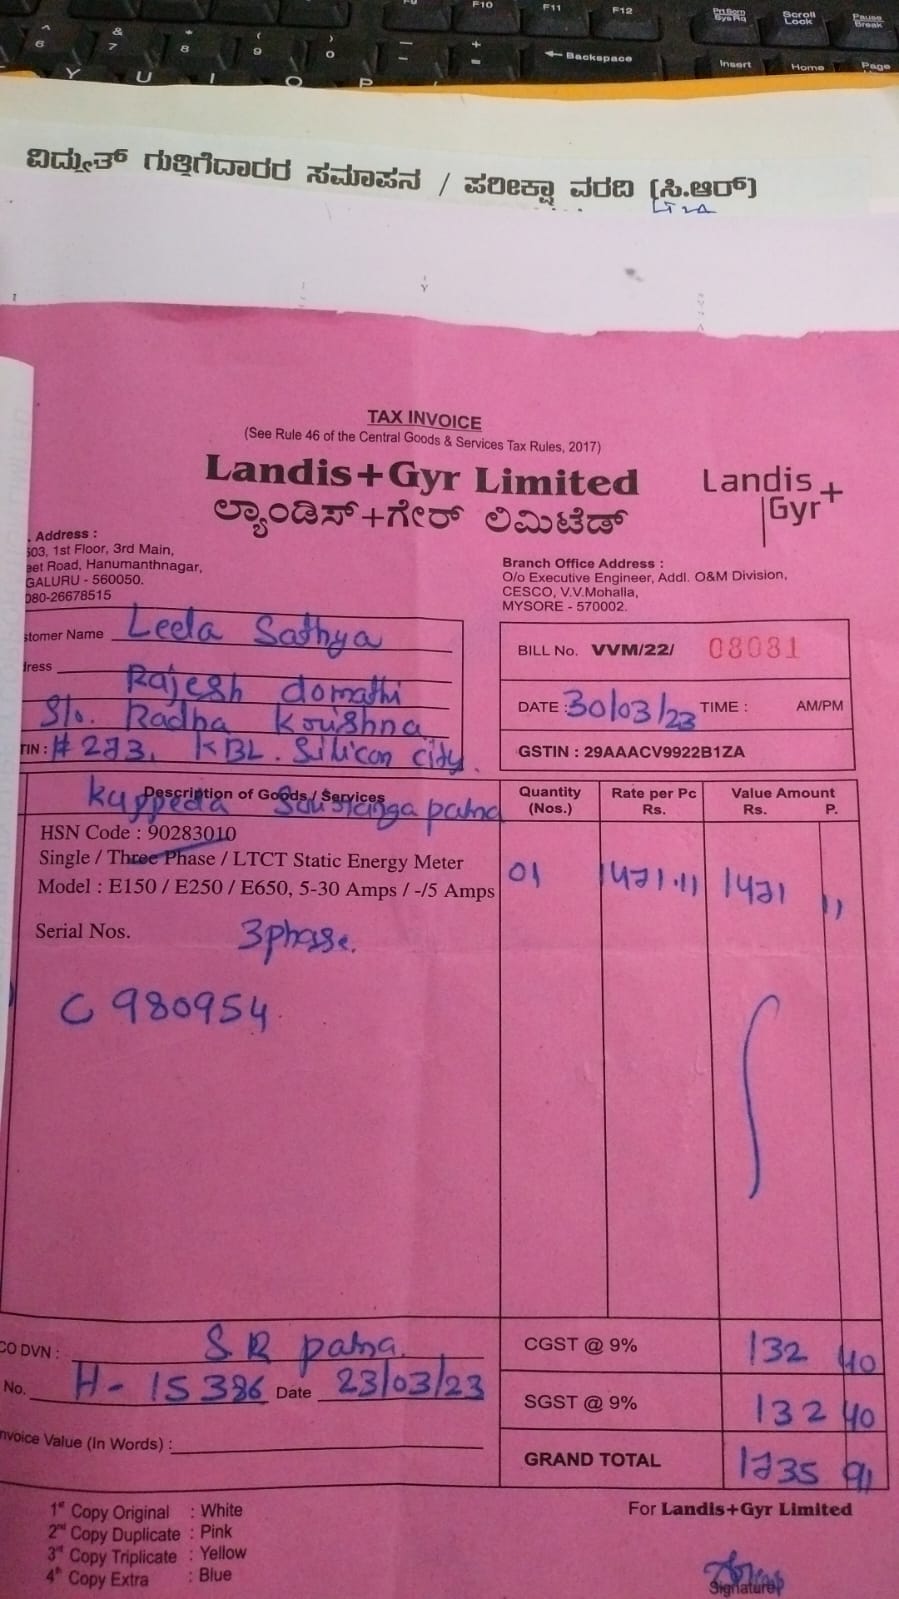 F10 F11 F12 PrtScrn SysRq Scroll Lock Pause Break
^ 6 & 7 * 8 ( 9 ) 0 _ - + = ← Backspace Insert Home Page
Y U I O P
ವಿದ್ಯುತ್ ಗುತ್ತಿಗೆದಾರರ ಸಮಾಪನ / ಪರೀಕ್ಷಾ ವರದಿ (ಸಿ.ಆರ್)
TAX INVOICE
(See Rule 46 of the Central Goods & Services Tax Rules, 2017)
Landis+Gyr Limited
Landis
Gyr+
ಲ್ಯಾಂಡಿಸ್+ಗೇರ್ ಲಿಮಿಟೆಡ್
. Address :
503, 1st Floor, 3rd Main,
eet Road, Hanumanthnagar,
GALURU - 560050.
080-26678515
Branch Office Address :
O/o Executive Engineer, Addl. O&M Division,
CESCO, V.V.Mohalla,
MYSORE - 570002.
stomer Name Leela Sathya
dress Rajesh domathi
S/o. Radha Krishna
TIN : # 273, KBL. Silicon city.
BILL No. VVM/22/ 08081
DATE : 30/03/23 TIME : AM/PM
GSTIN : 29AAACV9922B1ZA
Description of Goods / Services Quantity (Nos.) Rate per Pc Rs. Value Amount Rs. P.
HSN Code : 90283010
Single / Three Phase / LTCT Static Energy Meter
Model : E150 / E250 / E650, 5-30 Amps / -/5 Amps
01 1471.11 1471 11
Serial Nos. 3phase.
C 980954
CO DVN : S R patna.
No. H- 15386 Date 23/03/23
nvoice Value (In Words) :
CGST @ 9% 132 40
SGST @ 9% 132 40
GRAND TOTAL 1735 91
1st Copy Original : White
2nd Copy Duplicate : Pink
3rd Copy Triplicate : Yellow
4th Copy Extra : Blue
For Landis+Gyr Limited
Signature